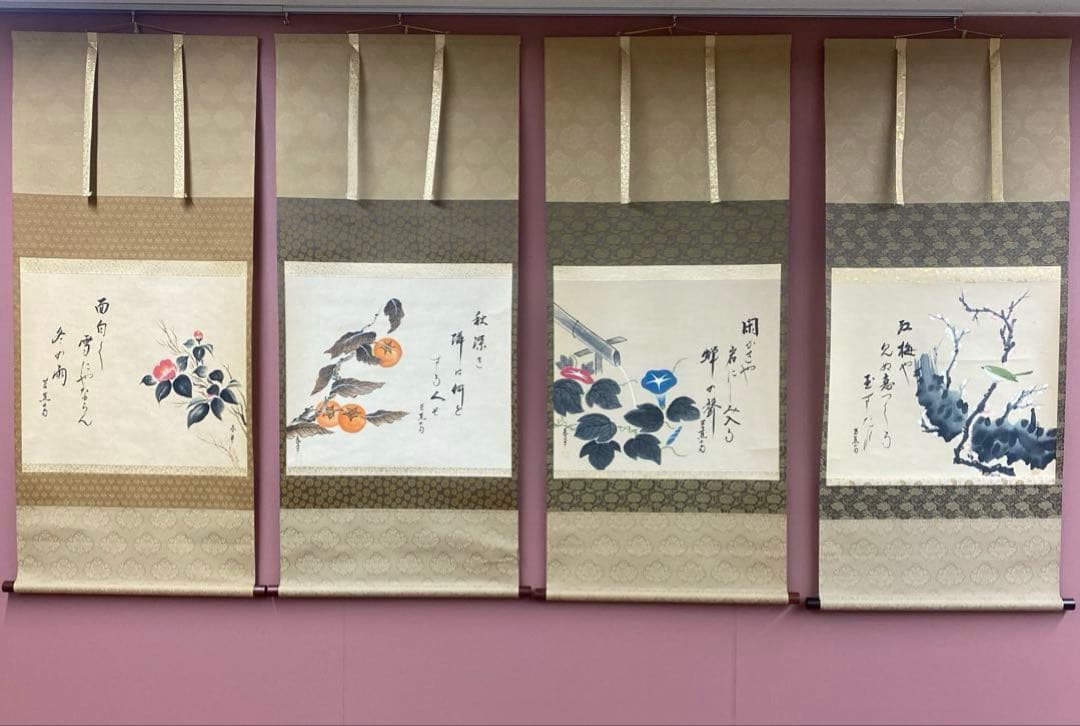 紅梅や
見ぬ恋つくる
玉すだれ
芭蕉の句
閑かさや
岩にしみ入る
蝉の聲
芭蕉の句
秋深き
隣は何を
する人そ
芭蕉の句
面白し
雪にやならん
冬の雨
芭蕉の句